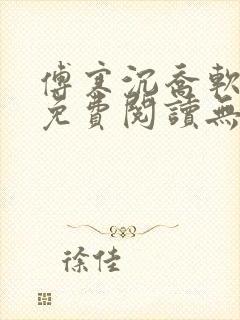 傅寒沉喬軟
免費閱讀無
徐佳